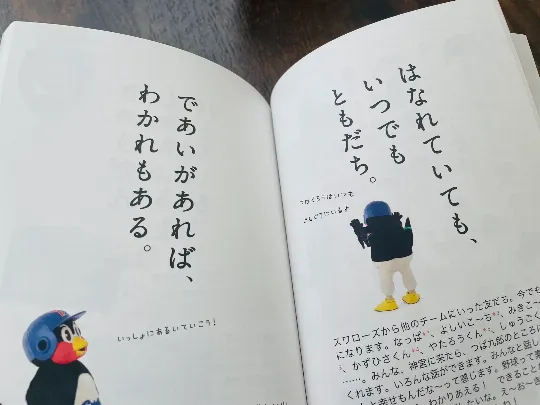 はなれていても、
いつでも
ともだち。
つばくろうはいつも
スワローズから他のチームにいった友だち。今でも
になります。なっぱ*¹、よしいこーち*²、みきこー
、かずひさくん*³、やたろうくん*⁴、しゅうこく
……。みんな、神宮に来たら、つば九郎のところに
くれます。いろんな話ができます。みんなと話し
、幸せもんだな〜って感じます。野球って
わかりあえる! できること
いたいな。えーおーき
であいがあれば、
わかれもある。
いっしょにあるいていこう!